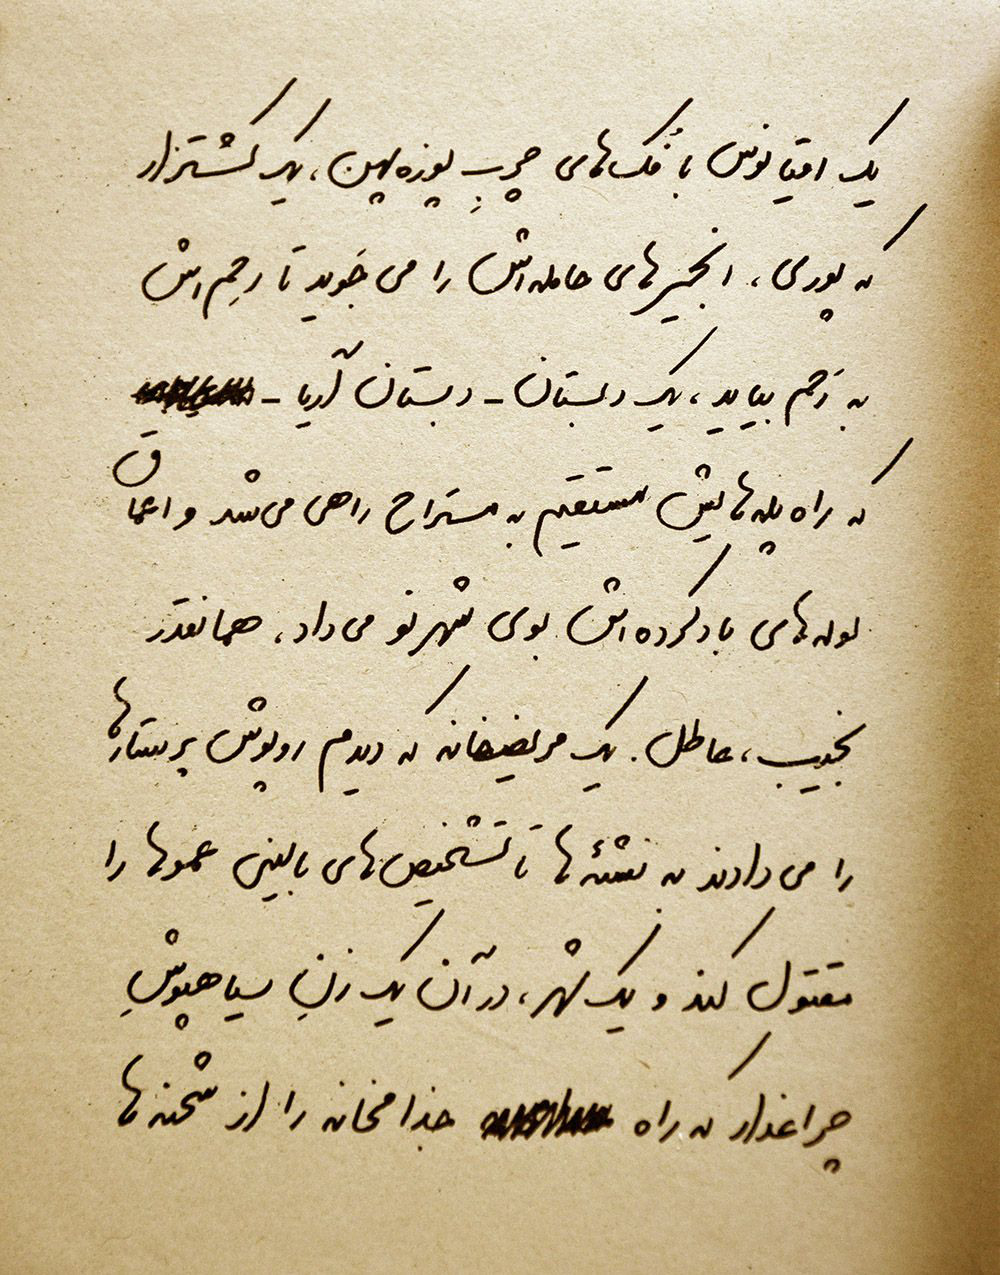 یک اقیانوس با فُک‌های چربِ پوزه پهن، یک کشتزار
که پوری، انجیرهای حامله‌اش را می‌جَوید تا رحِم‌اش
به رَحم بیاید، یک دبستان - دبستان آریا -
که راه پله‌هایش مستقیم به مستراح راهی می‌شد و اعماق
لوله‌های بادکرده‌اش بوی شهر نو می‌داد، همانقدر
نجیب، عاطل. یک مریضخانه که دیدم روپوش پرستارها
را می‌دادند به نشئه‌ها تا تشخیص‌های بالینی عموها را
مقتول کند و یک شهر، در آن یک زنِ سیاهپوشِ
چراغدار که راه جذامخانه را از شحنه‌ها